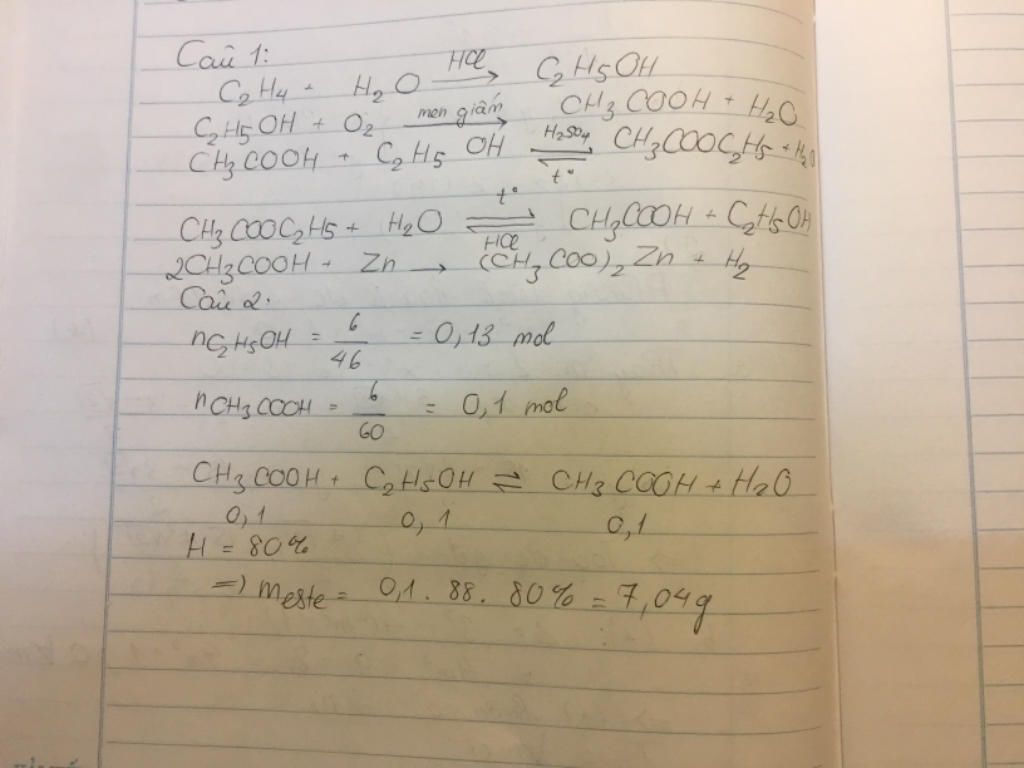 Câu 1:
C2H4 + H2O →(HCl) C2H5OH
C2H5OH + O2 →(men giấm) CH3COOH + H2O
CH3COOH + C2H5OH ⇌(H2SO4, t°) CH3COOC2H5 + H2O
CH3COOC2H5 + H2O ⇌(t°, HCl) CH3COOH + C2H5OH
2CH3COOH + Zn → (CH3COO)2Zn + H2
Câu 2:
nC2H5OH = 6/46 = 0,13 mol
nCH3COOH = 6/60 = 0,1 mol
CH3COOH + C2H5OH ⇌ CH3COOH + H2O
0,1 0,1 0,1
H = 80%
=) meste = 0,1 . 88 . 80% = 7,04g